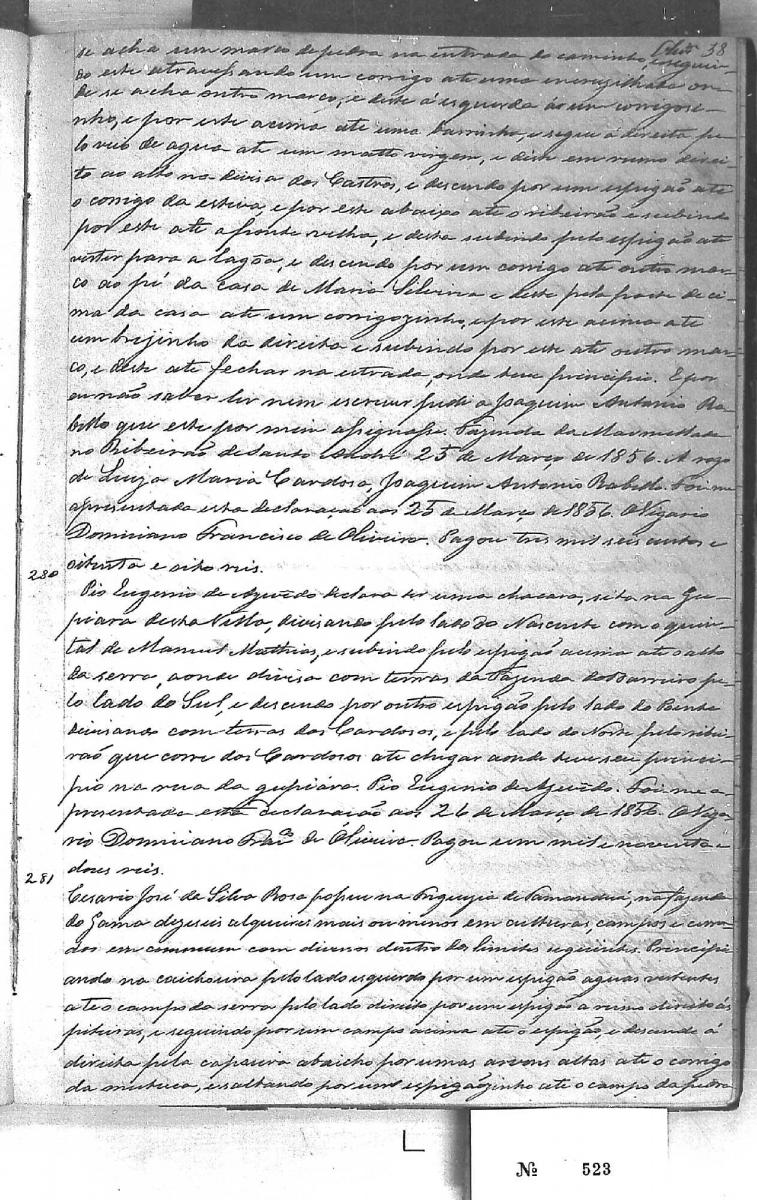 38
se acha um marco de pedra na entrada do caminho, e seguin-
do este atravessando um corrigo até uma encruzilhada on-
de se acha outro marco, e deste á esquerda a um corregosi-
nho, e por este acima até uma barrinha, e segue á direita pe-
lo veio de agua até um matto virgem, e dêm em rumo direi-
to ao alto na divisa dos Castros, e descendo por um espigão até
o corrigo da esteva, e por este abaixo até o ribeirão e subindo
por este até a fronte velha, e desta subindo pelo espigão até
verter para a lagôa, e descendo por um corrigo até outro mar-
co ao pé da casa de Maria Silvina e deste pela parte de ci-
ma da casa até um corrigozinho, e por este acima até
um brejinho da direita e subindo por este até outro mar-
co, e deste até fechar na estrada, onde teve principio. E por
eu não saber ler nem escrever pedi a Joaquim Antonio Ra-
bello que este por mim assignasse. Fazenda da Marmellada
no Ribeirão de Santo André 25 de Março de 1856. A rogo
de Luiza Maria Cardosa, Joaquim Antonio Rabello. Foi me
apresentada esta declaração aos 25 de Março de 1856. O Vigario
Domiciano Francisco de Oliveira. Pagou tres mil seis centos e
oitenta e oito reis.
280
Pio Eugenio de Azevêdo declara ter uma chacara, sita na Gu-
piara desta Villa, divisando pelo lado do Nascente com o quin-
tal de Manuel Mathias, e subindo pelo espigão acima até o alto
da serra, aonde divisa com terras da Fazenda do Barreiro pe-
lo lado do Sul, e descendo por outro espigão pelo lado do Poente
divisando com terras dos Cardosos, e pelo lado do Norte pelo ribei-
raõ que corre dos Cardosos até chegar aonde teve seu princi-
pio na rua da gupiára. Pio Eugenio de Azevêdo. Foi me a-
presentada esta declaração aos 26 de Março de 1856. O Viga-
rio Domiciano Fran.co de Oliveira. Pagou um mil e noventa e
dous reis.
281
Cesario José da Silva Rosa possue na Freguezia de Tamanduá, na fazenda
do Gama dezeseis alqueires mais ou menos em culturas campos e cerra-
dos em commum com diversos dentro dos limites seguintes. Principi-
ando na caichoeira pelo lado esquerdo por um espigão aguas vertentes
até o campo da serra pelo lado direito por um espigão a rumo direito ás
piteiras, e seguindo por um campo acima até o espigão, e descendo á
direita pela capoeira abaicho por umas arvores altas até o corrigo
da mutuca, e saltando por um espigãozinho até o campo da pedra
Nº 523